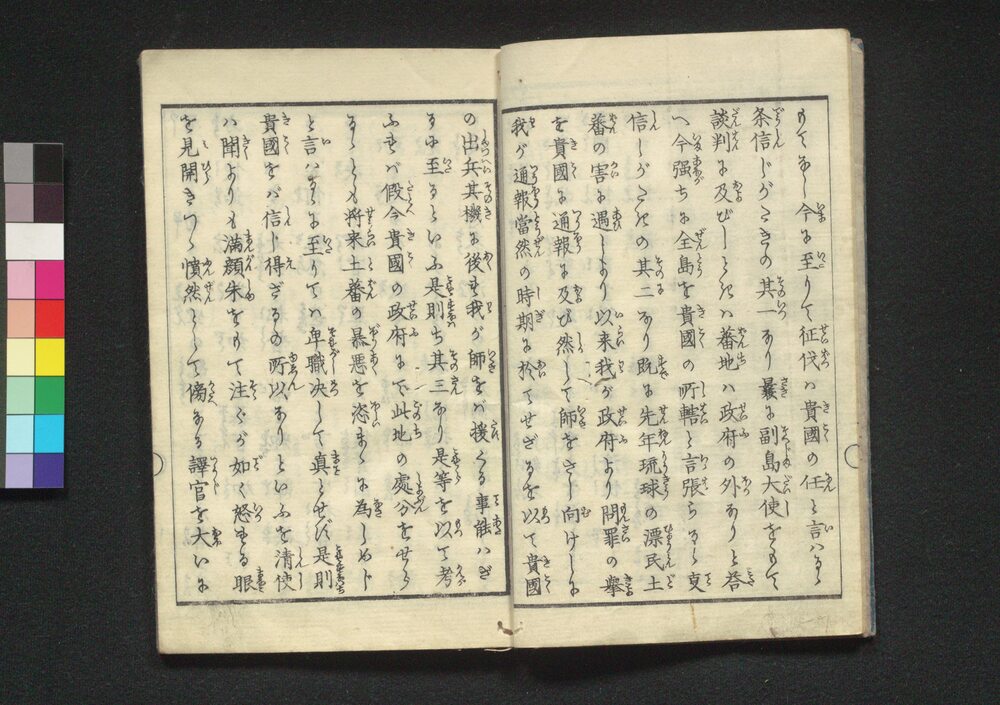 もてなし今に至りて征伐ハ貴國の任と言ハるゝ
条信じがたきの其一なり曩に副島大使をもて
談判に及びしときハ蕃地ハ政府の外なりと答
へ今强ちに全島を貴國の所轄と言張らるゝ
信じがたきの其二なり既に先年琉球の漂民土
蕃の害に遇しより以来我が政府より問罪の擧
を貴國に通報に及び然して師をさし向けしに
我が通報當然の時期に於てせざるを以て貴國
の出兵其機に後れ我が師をバ援くる事能ハざ
るに至るといふ是則ち其三なり是等を以て考
ふれバ假令貴國の政府にて此地の處分をせら
るゝとも将来土蕃の暴悪を恣まゝに為しめじ
と言ハるゝに至りてハ卑職决して真とせず是則
貴國をバ信じ得ざるの所以なりといふを清使
ハ聞よりも滿顔朱をもて注ぐが如く怒れる眼
を見開きつゝ憤然として傍なる譯官を大いに